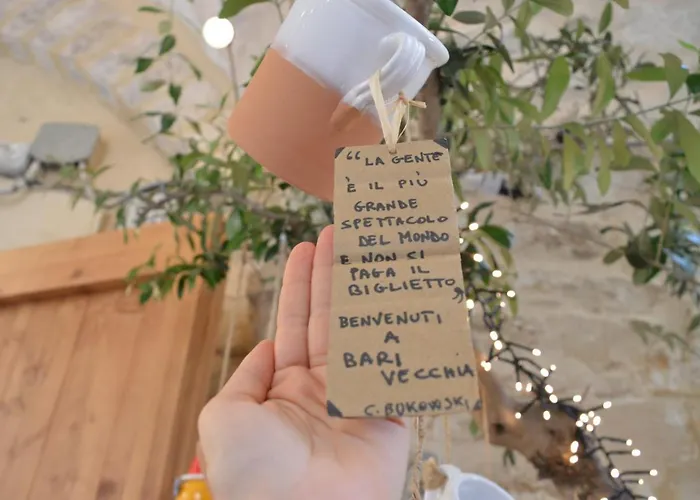 “LA GENTE
È IL PIÙ
GRANDE
SPETTACOLO
DEL MONDO
E NON CI
PAGA IL
BIGLIETTO„
BENVENUTI
A
BARI
VECCHIA
C. BUKOWSKI